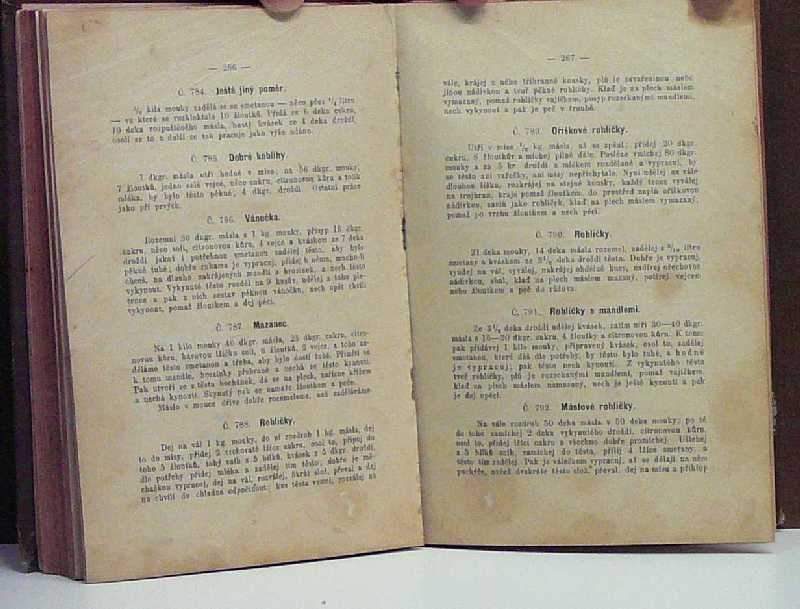 — 266 —
Č. 784. Ještě jiný poměr.
kila mouky zadělá se se smetanou — něco přes ¼ litru
— ve které se rozkloktalo 10 žloutků. Přidá se 6 deka cukru,
10 deka rozpuštěného másla, hustý kvásek ze 4 deka droždí,
osolí se to a další se tak pracuje jako výše udáno.
Č. 785. Dobré koblihy.
7 dkgr. másla utři hodně v míse; na 56 dkgr. mouky,
7 žloutků, jedno celé vejce, něco cukru, citronovou kůru a tolik
mléka, by bylo těsto pěkné, 4 dkgr. droždí. Ostatní práce
jako při prvých.
Č. 786. Vánočka.
Rozemni 36 dkgr. másla s 1 kg. mouky, přisyp 18 dkgr.
cukru, něco soli, citronovou kůru, 4 vejce a kváskem ze 7 deka
droždí jakož i potřebnou smetanou zadělej těsto, aby bylo
pěkně tuhé; dobře cukama je vypracuj, přidej k němu, mnoho-li
chceš, na dlouho zakrájených mandlí a hrozinek, a nech těsto
vykynout. Vykynuté těsto rozděl na 9 kusů, udělej z toho ple-
tence a pak z nich sestav pěknou vánočku, nech opět chvíli
vykynout, pomaž žloutkem a dej péci.
Č. 787. Mazanec.
Na 1 kilo mouky 40 dkgr. másla, 25 dkgr. cukru, citro-
novou kůru, kávovou lžičku soli, 6 žloutků, 2 vejce, a toho za-
děláme těsto smetanou z třeba, aby bylo dosti tuhé. Přimísí se
k tomu mandle, hrozinky přebrané a nechá se těsto kynout.
Pak utvoří se z těsta bochánek, dá se na plech, nařízne křížem
a nechá kynouti. Skynutý pak se pomaže žloutkem a peče.
Máslo v mouce dříve dobře rozemeleme, než zaděláváme
Č. 788. Rohlíčky.
Dej na vál 1 kg. mouky, do ní rozdrob 1 kg. másla, dej
to do mísy, přidej 2 vrchovaté lžíce cukru, osol to, připoj do
toho 5 žloutků, tuhý sníh z 5 bílků, kvásek z 5 dkgr. droždí,
dle potřeby přidej mléka a zadělej tím těsto; dobře je mě-
chačkou vypracuj, dej na vál, rozválej, čtyři slož, převal a dej
na chvíli do chladna odpočinout; kus těsta vezmi, rozválej na
— 267 —
vále, krájej z něho tříhranné kousky, plň je zavařeninou nebo
jinou nádivkou a toč pěkné rohlíčky. Klaď je na plech máslem
vymazaný, pomaž rohlíčky vajíčkem, posyp rozsekanými mandlemi,
nech vykynout a pak je peč v troubě.
Č. 789. Oříškové rohlíčky.
Utři v míse kg. másla, až se zpění; přidej 20 dkgr.
cukru, 6 žloutků a míchej pilně dále. Posléze vmíchej 80 dkgr.
mouky a za 5 kr. droždí s mlékem rozdělané a vypracuj, by
se těsto ani vařečky, ani mísy nepřichytalo. Nyní udělej na vále
dlouhou šišku, rozkrájej na stejné kousky, každý zvlášť vyválej
na trojhran, kraje pomaž žloutkem, do prostřed napln oříškovou
nádivkou, zatoč jako rohlíček, klaď na plech máslem vymazaný,
pomaž po vrchu žloutkem a nech péci.
Č. 790. Rohlíčky.
21 deka mouky, 14 deka másla rozemel, zadělej z litru
smetany a kváskem ze 3½ deka droždí těsto. Dobře je vypracuj,
vyndej na vál, vyválej, nakrájej obdélné kusy, namaž ořechovou
nádivkou, sbal, klaď na plech máslem mazaný, potírej vejcem
nebo žloutkem a peč do růžova.
Č. 791. Rohlíčky s mandlemi.
Ze 3½ deka droždí udělej kvásek, zatím utři 30—40 dkgr.
másla s 15—20 dkgr. cukru, 4 žloutky a citronovou kůru. K tomu
pak přidávej 1 kilo mouky, připravený kvásek, osol to, zadělej
smetanou, které dáš dle potřeby, by těsto bylo tuhé, a hodně
je vypracuj; pak těsto nech kynouti. Z vykynutého těsta
tvoř rohlíčky, plň je rozsekanými mandlemi, pomaž vajíčkem,
klaď na plech máslem namazaný, nech je ještě kynouti a pak
je dej upéci.
Č. 792. Máslové rohlíčky.
Na vále rozdrob 50 deka másla v 50 deka mouky; po té
do toho zamíchej 2 deka vykynutého droždí, citronovou kůru,
osol to, přidej lžíci cukru a všechno dobře promíchej. Ušlehej
z 5 bílků sníh, zamíchej do těsta, přilej 4 lžíce smetany, a
těsto tím zadělej. Pak je válečkem vypracuj, až se dělají na něm
puchýře, načež dvakráte těsto slož, převal, dej na mísu a přiklop